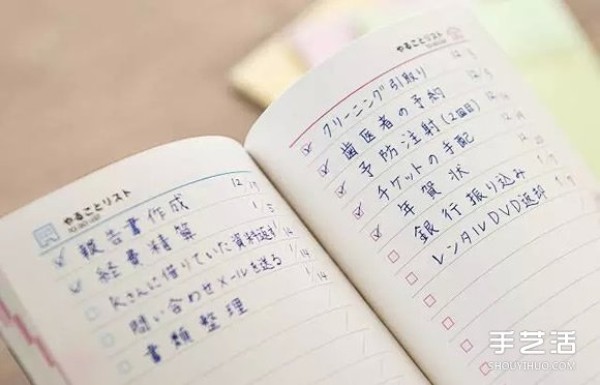 やることリスト
TO DO LIST
報告書作成 12/19
経費精算 1/5
Kさんに借りていた資料返す 1/14
問い合わせメールを送る 1/14
書類整理
やることリスト
クリーニング引取り 12/5
歯医者の予約 12/5
予防注射(2回目) 12
チケットの手配 12
年賀状 12/20
銀行振り込み 1/7
レンタルDVD返却 1/7
手艺活
SHOUYIHUO.COM